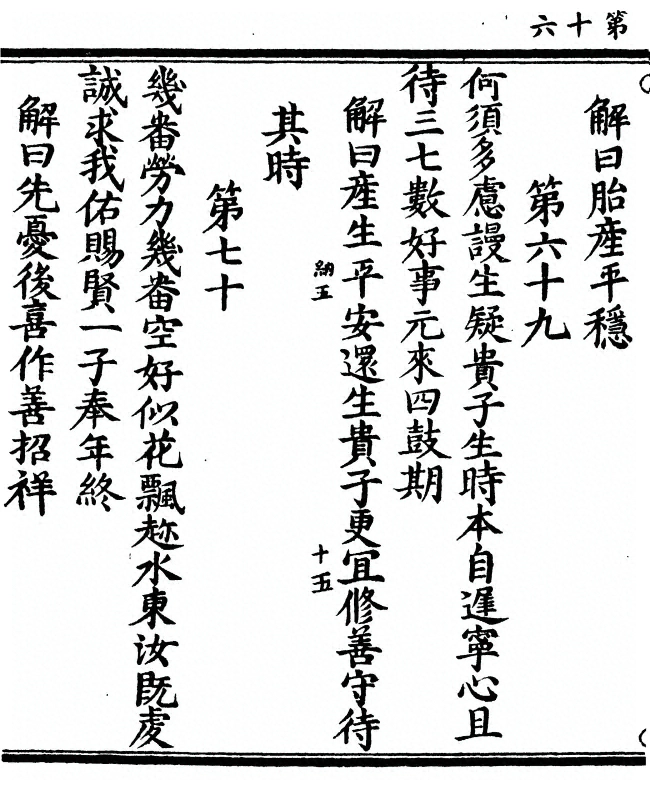 第十六
解曰胎產平穩
第六十九
何須多慮謾生疑貴子生時本自遲寧心且
待三七數好事元來四鼓期
解曰產生平安還生貴子更宜修善守待
納五
十五
其時
第七十
幾番勞力幾番空好似花飄趂水東汝既虔
誠求我佑賜賢一子奉年終
解曰先憂後喜作善招祥